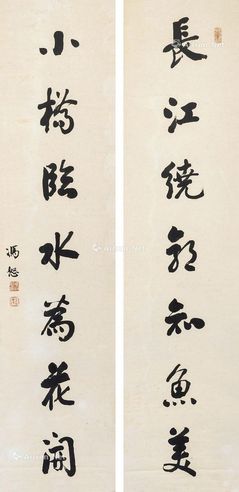 長江繞郭知魚美
小橋臨水為花開
馮恕